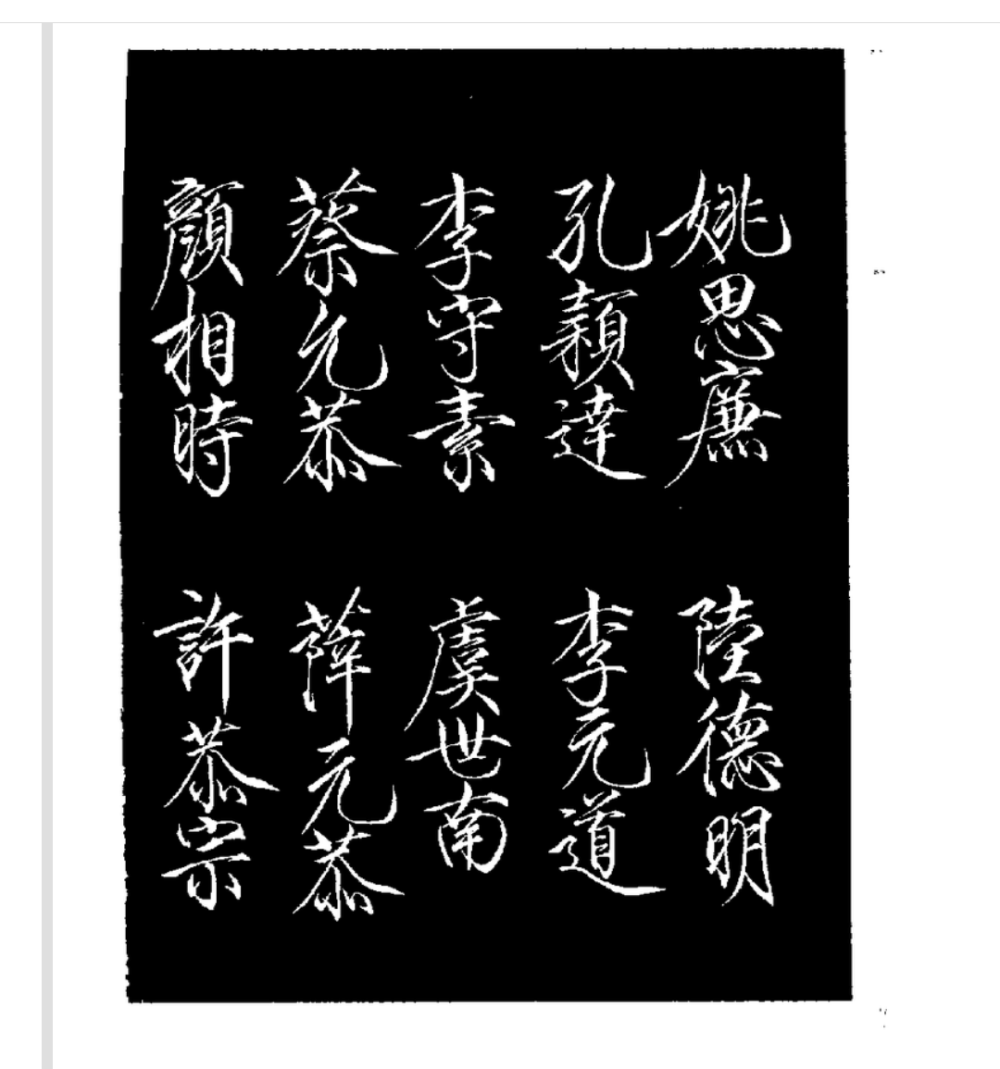 姚思廉 陸德明
孔穎達 李元道
李守素 虞世南
蔡允恭 薛元恭
顏相時 許恭宗